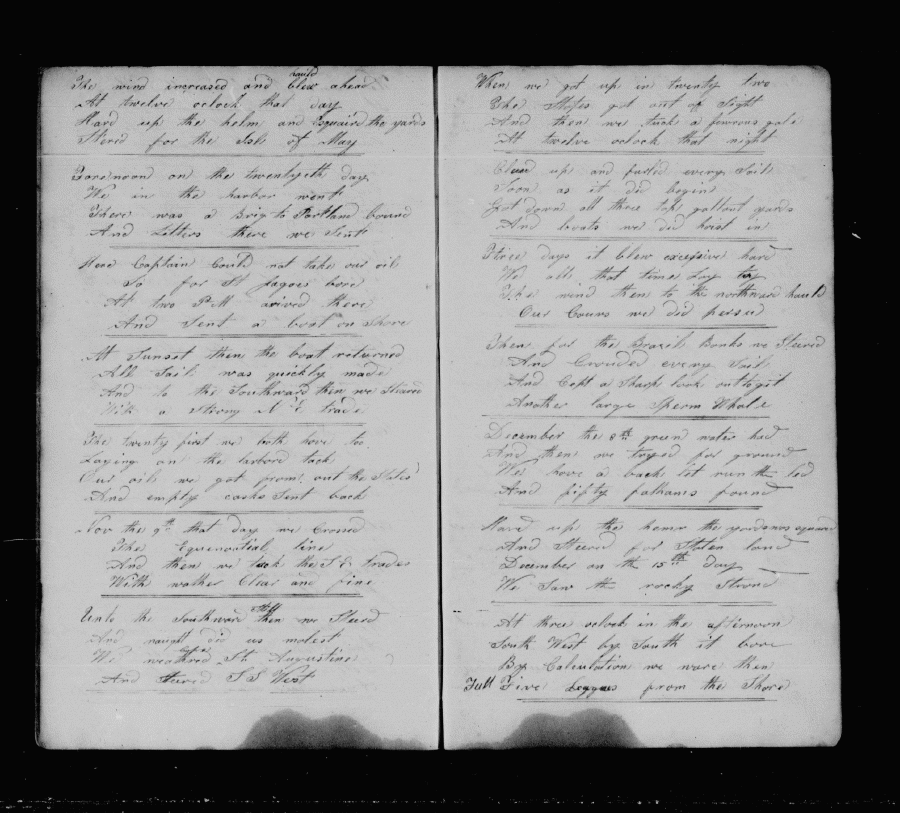 The wind increased and blew ahead
hauld
At twelve oclock that day
Hard up the helm and Squaird the yards
Steird for the Isle of May
Forenoon on the twentyeth day
We in the harbor went
There was a Brig to Portland bound
And Letters there we Sent
Here Captain Could not take our oil
So for St Jagoes bore
At two P.M arived there
And Sent a boat on Shore
At Sunset then the boat returned
All Sail was quickly made
And to the Southward then we Steared
With a Strong trade
The twenty first we both hove too
Laying on the larbord tack
Our oil we got from out the
And empty casks Sent back
Nov the 9th that day we Crossed
The Equenoctial line
And then we took the S.E trades
With wather Clear and fine
Unto the Southward then we Steird
Still
And naught did us molest
We weathred St Augustine
Cape
And Steired S S West
When we got up in twenty two
The Ships got out of Sight
And then we tuck a fewrous gale
At twelve oclock that night
Clued up and furled every Sail
Soon as it did begin
Got down all three top gallant yards
And boats we did hoist in
Three days it blew excessive hard
We all that time Lay try
The wind then to the northward hauld
Our Cours we did persue
Then for the Banks we Steered
And Crouded every Sail
And Cept a Sharp look out to git
Another large Sperm Whale
December the 8th green water had
And then we tryed for ground
We hove a back let run the led
And fifty fathams found
Hard up the the yards was squard
And Steerd for Staten land
December on the 15th day
We Saw the rocky Strand
At three oclock in the afternoon
South West by South it bore
By Calculation we ware then
Full Five Leagues from the Shore